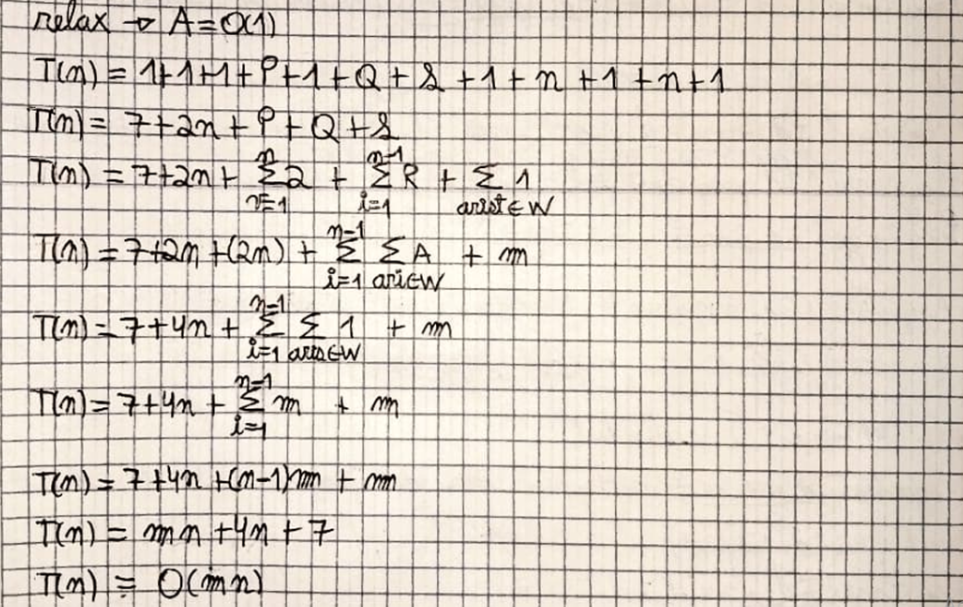 relax → A=O(1)
T(n) = 1+1+1+P+1+Q+S+1+n+1+n+1
T(n) = 7+2n+P+Q+S
T(n) = 7+2n+ \sum_{v=1}^{n} 2 + \sum_{i=1}^{n-1} R + \sum_{arist∈W} 1
T(n) = 7+2n+(2n) + \sum_{i=1}^{n-1} \sum_{ari∈W} A + m
T(n) = 7+4n + \sum_{i=1}^{n-1} \sum_{aris∈W} 1 + m
T(n) = 7+4n + \sum_{i=1}^{n-1} m + m
T(n) = 7+4n+(n-1)m + m
T(n) = mn+4n+7
T(n) = O(mn)